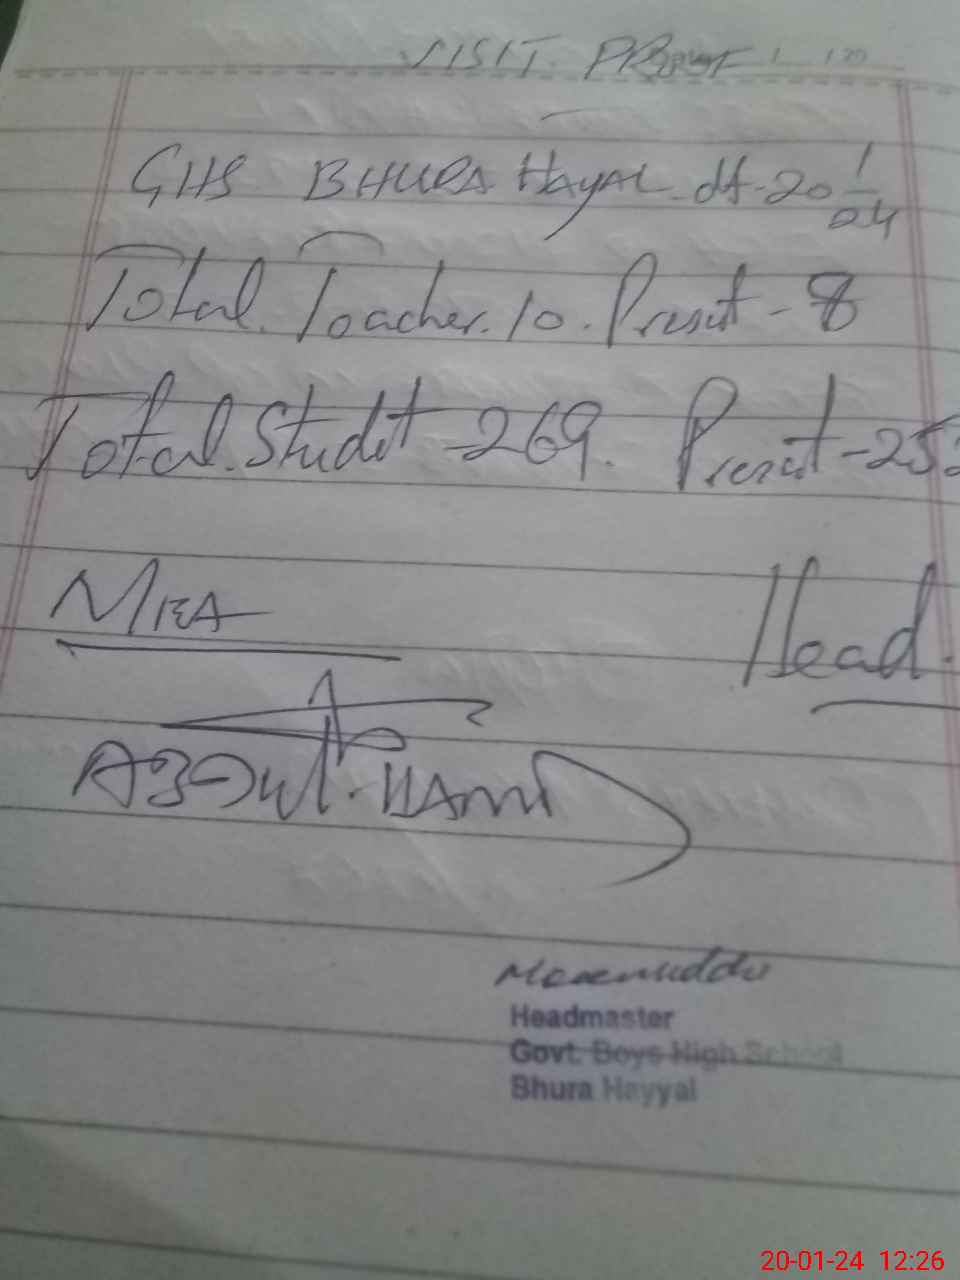 VISIT
GHS BHURA HAYAL dt-20 1/24
Total Teacher. 10. Present - 8
Total. Studet - 269. Present - 25
MEA
Head.
ABDUL. HAMID
Headmaster
Govt. Boys High School
Bhura Hayyal
20-01-24 12:26